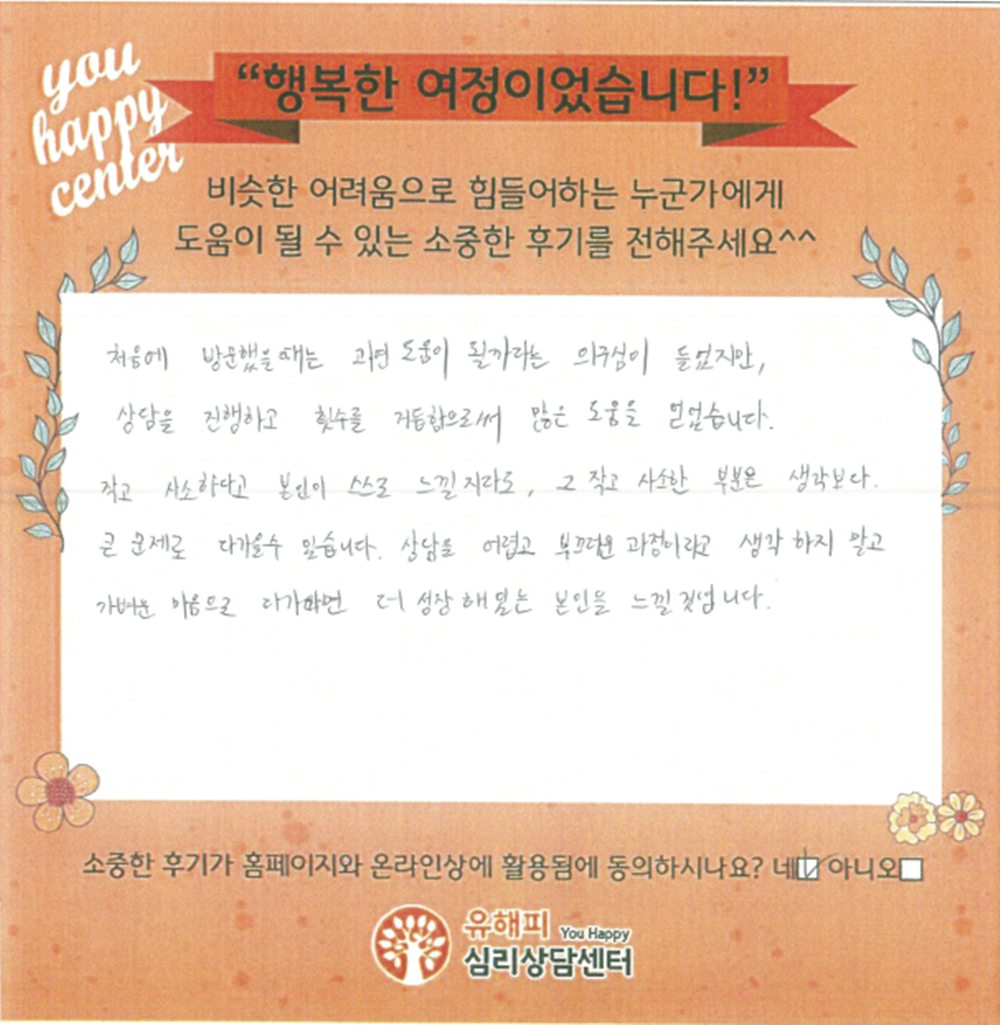 you
happy
center
“행복한 여정이었습니다!”
비슷한 어려움으로 힘들어하는 누군가에게
도움이 될 수 있는 소중한 후기를 전해주세요^^
처음에 방문했을때는 과연 도움이 될까라는 의구심이 들었지만,
상담을 진행하고 횟수를 거듭함으로써 많은 도움을 얻었습니다.
작고 사소하다고 본인이 스스로 느낄지라도, 그 작고 사소한 부분은 생각보다.
큰 문제로 다가올수 있습니다. 상담을 어렵고 부끄러운 과정이라고 생각 하지 말고
가벼운 마음으로 다가가면 더 성장해있는 본인을 느낄것입니다.
소중한 후기가 홈페이지와 온라인상에 활용됨에 동의하시나요? 네 아니오
유해피 You Happy
심리상담센터